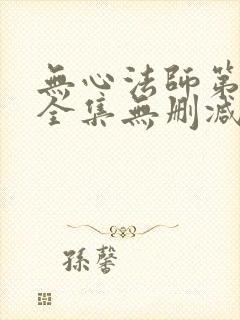 無心法師第
全集無刪减
孫馨